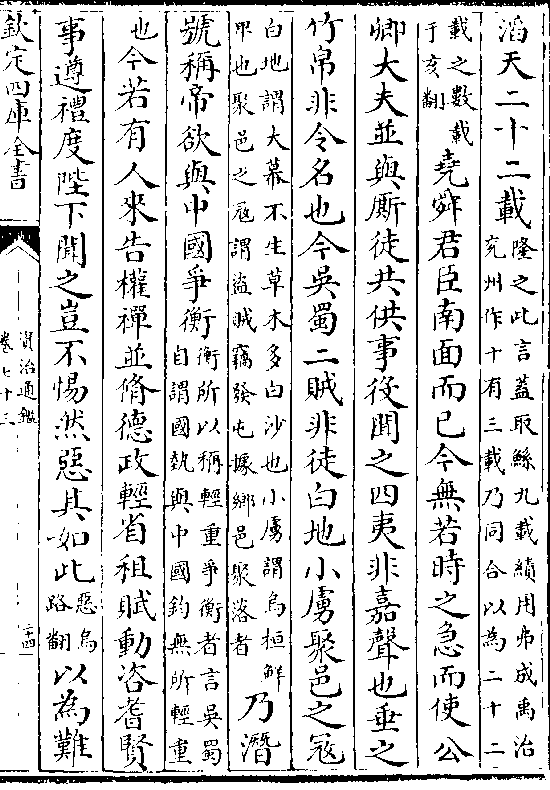 滔天二十二載隆之此言蓋取鯀九載績用弗成禹治兖州作十有三載乃同合以為二十二
載之數載于亥翻堯舜君臣南面而已今無若時之急而使公
卿大夫並與厮徒共供事役聞之四夷非嘉聲也垂之
竹帛非令名也今吳蜀二賊非徒白地小虜聚邑之冦
白地謂大幕不生草木多白沙也小虜謂烏桓鮮卑也聚邑之冦謂盜賊竊發屯據鄉邑聚落者乃潛
號稱帝欲與中國爭衡衡所以稱輕重爭衡者言吳蜀自謂國埶與中國鈞無所輕重
也今若有人來告權禪並脩德政輕省租賦動咨耆賢
事遵禮度陛下聞之豈不惕然惡其如此惡烏路翻以為難
欽定四庫全書
資治通鑑
卷七十三
二十四